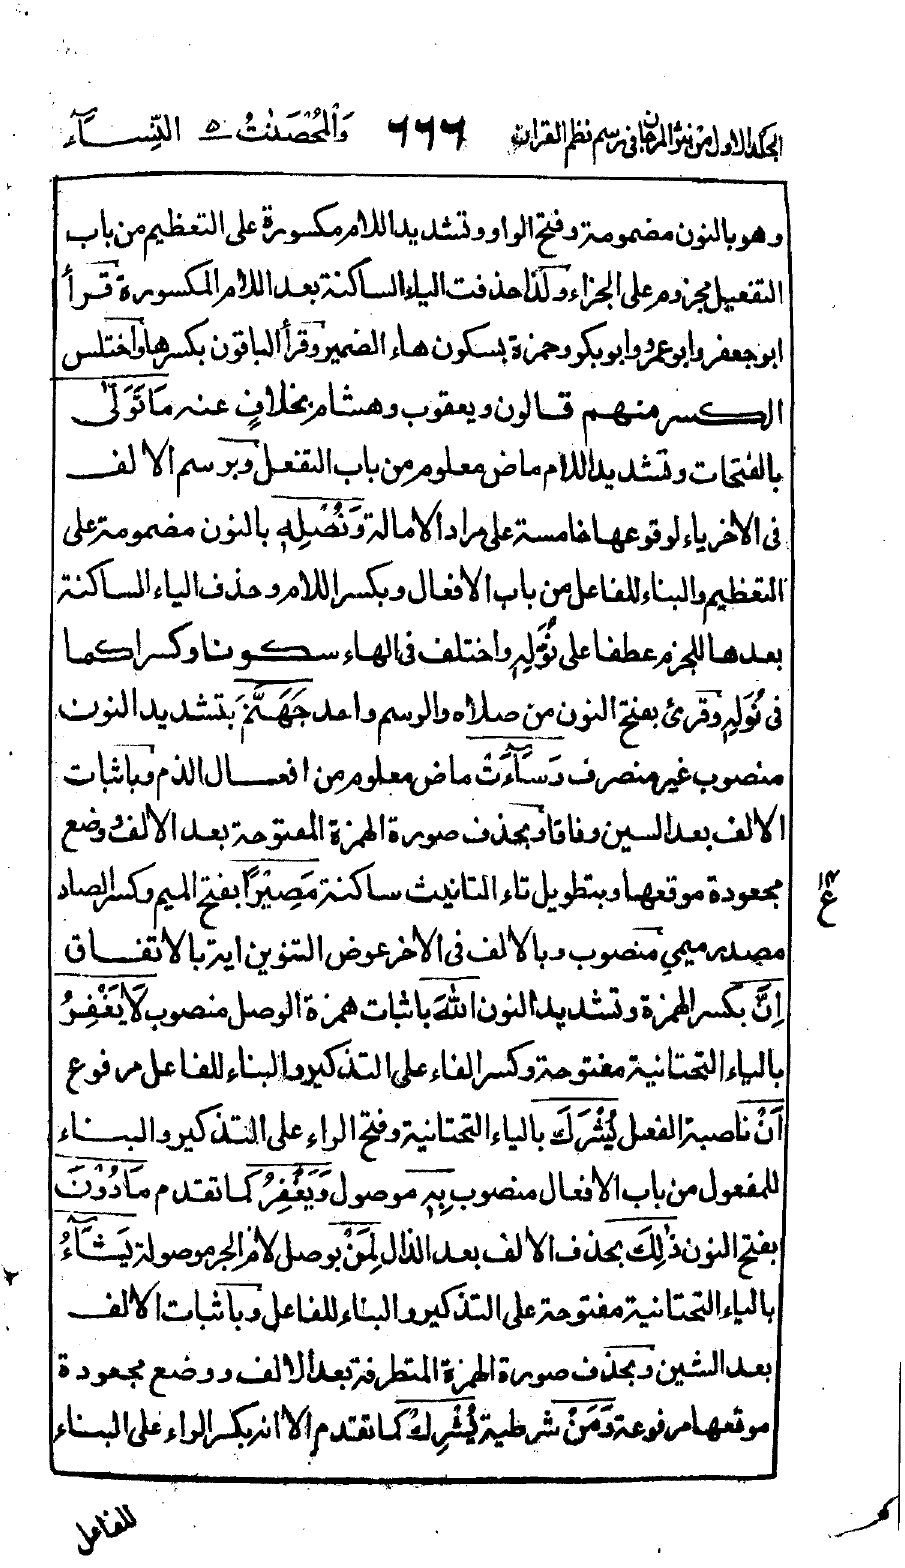 الجلد الاول من نثر المرجان في رسم نظم القران ٦٦٦ وَالْمُحْصَنٰتُ ٥ النِّسَآء
وهو بالنون مضمومة وفتح الواو وتشديد اللام مكسورة على التعظيم من باب
التفعيل مجزوم على الجزاء وكذا حذفت الياء الساكنة بعد اللام المكسورة قرأ
ابو جعفر وابو عمرو وابو بكر وحمزة بسكون هاء الضمير وقرأ الباقون بكسرها واختلس
الكسر منهم قالون ويعقوب وهشام بخلافٍ عنه مَا تَوَلّٰى
بالفتحات وتشديد اللام ماض معلوم من باب التفعل وبرسم الالف
فى الاخر ياء لوقوعها خامسة على مراد الامالة وَنُصْلِهٖ بالنون مضمومة على
التعظيم والبناء للفاعل من باب الافعال وبكسر اللام وحذف الياء الساكنة
بعدها للجزم عطفا على نُوَلِّهٖ واختلف فى الهاء سكونا وكسرا كما
فى نُوَلِّهٖ وقرئ بفتح النون من صلاه والرسم واحد جَهَنَّمَ بتشديد النون
منصوب غير منصرف وَسَآءَتْ ماض معلوم من افعال الذم وباثبات
الالف بعد السين وفاقا وبحذف صورة الهمزة المفتوحة بعد الالف ووضع
مجعودة موقعها وبتطويل تاء التانيث ساكنة مَصِيْرًا بفتح الميم وكسر الصاد
مصدر ميمي منصوب وبالالف فى الاخر عوض التنوين اية بالاتفاق
اِنَّ بكسر الهمزة وتشديد النون اللّٰهَ باثبات همزة الوصل منصوب لَا يَغْفِرُ
بالياء التحتانية مفتوحة وكسر الفاء على التذكير والبناء للفاعل مرفوع
اَنْ ناصبة الفعل يُشْرَكَ بالياء التحتانية وفتح الراء على التذكير والبناء
للمفعول من باب الافعال منصوب بِهٖ موصول وَيَغْفِرُ كما تقدم مَا دُوْنَ
بفتح النون ذٰلِكَ بحذف الالف بعد الذال لِمَنْ بوصل لام الجر موصولة يَّشَآءُ
بالياء التحتانية مفتوحة على التذكير والبناء للفاعل وباثبات الالف
بعد الشين وبحذف صورة الهمزة المتطرفة بعد الالف ووضع مجعودة
موقعها مرفوعة وَمَنْ شرطية يُّشْرِكْ كما تقدم الا انه بكسر الراء على البناء
للفاعل